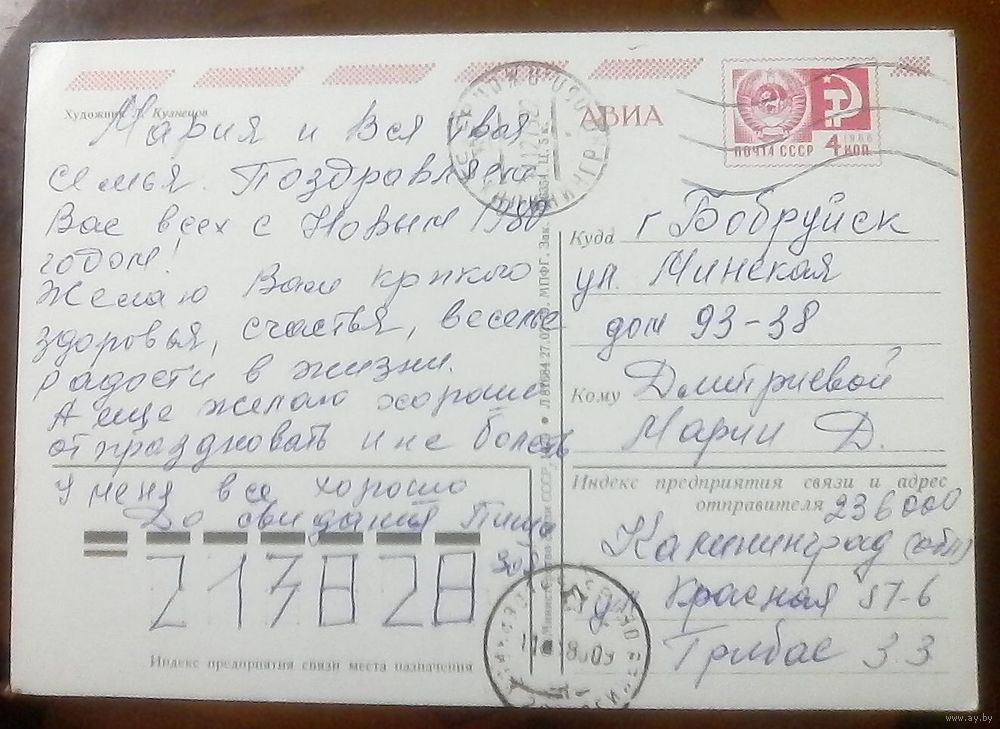 Художник Л. Кузнецов
Мария и вся твоя
семья. Поздравляем
Вас всех с Новым 1980
годом!
Желаю Вам крпкого
здоровья, счастья, веселье
радости в жизни.
А еще желаю хорошо
отпраздновать и не болеть
У меня все хорошо
До свидания Пиши
21382
Индекс предприятия связи места назначения
АВИА
ПОЧТА СССР 4 КОП
1966
Куда г Бобруйск
ул. Минская
дом 93-38
Кому Дмитриевой
Марии Д.
Индекс предприятия связи и адрес
отправителя 236000
Калининград (обл)
ул Красная 57-6
Грибас З.З
www.ay.by